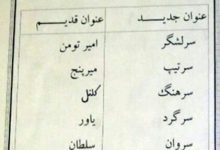 عنوان جدید عنوان قدیم
سرلشگر امیر تومن
سرتیپ میرپنج
سرهنگ کلنل
سرگرد یاور
سروان سلطان